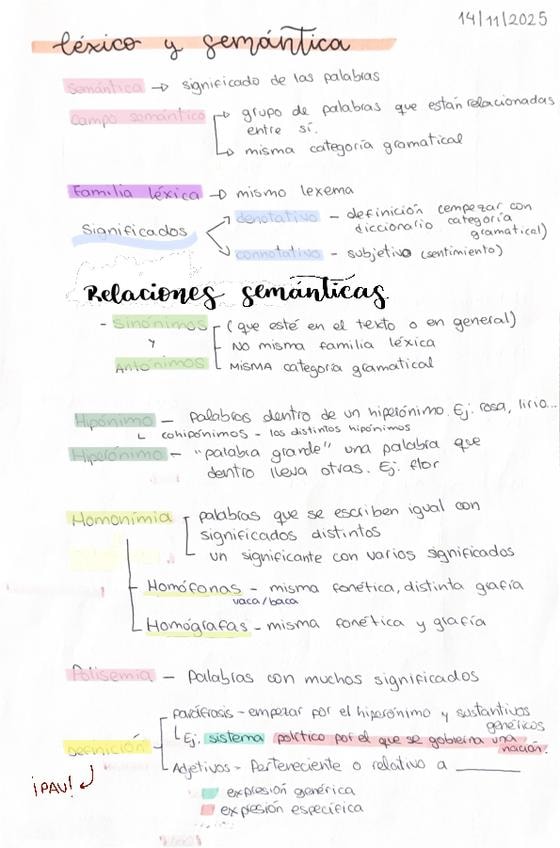 14/11/2025
léxico y semántica
Semántica → significado de las palabras
Campo semántico → grupo de palabras que están relacionadas
entre sí.
→ misma categoría gramatical
Familia léxica → mismo lexema
Significados
denotativo - definición (empezar con
diccionario categoría
gramatical)
connotativo - subjetivo (sentimiento)
Relaciones semánticas
- Sinónimos
y
Antónimos
(que esté en el texto o en general)
NO misma familia léxica
MISMA categoría gramatical
Hipónimo - Palabras dentro de un hiperónimo. Ej: rosa, lirio...
cohipónimos - los distintos hipónimos
Hiperónimo - "palabra grande" una palabra que
dentro lleva otras. Ej: flor
Homonimia
palabras que se escriben igual con
significados distintos
un significante con varios significados
Homófonas - misma fonética, distinta grafía
vaca/baca
Homógrafas - misma fonética y grafía
Polisemia - Palabras con muchos significados
Definición
Paráfrasis - empezar por el hiperónimo y sustantivos
genéricos
Ej. sistema político por el que se gobierna una
nación.
Adjetivos - Perteneciente o relativo a ______
¡PAU!
expresión genérica
expresión específica